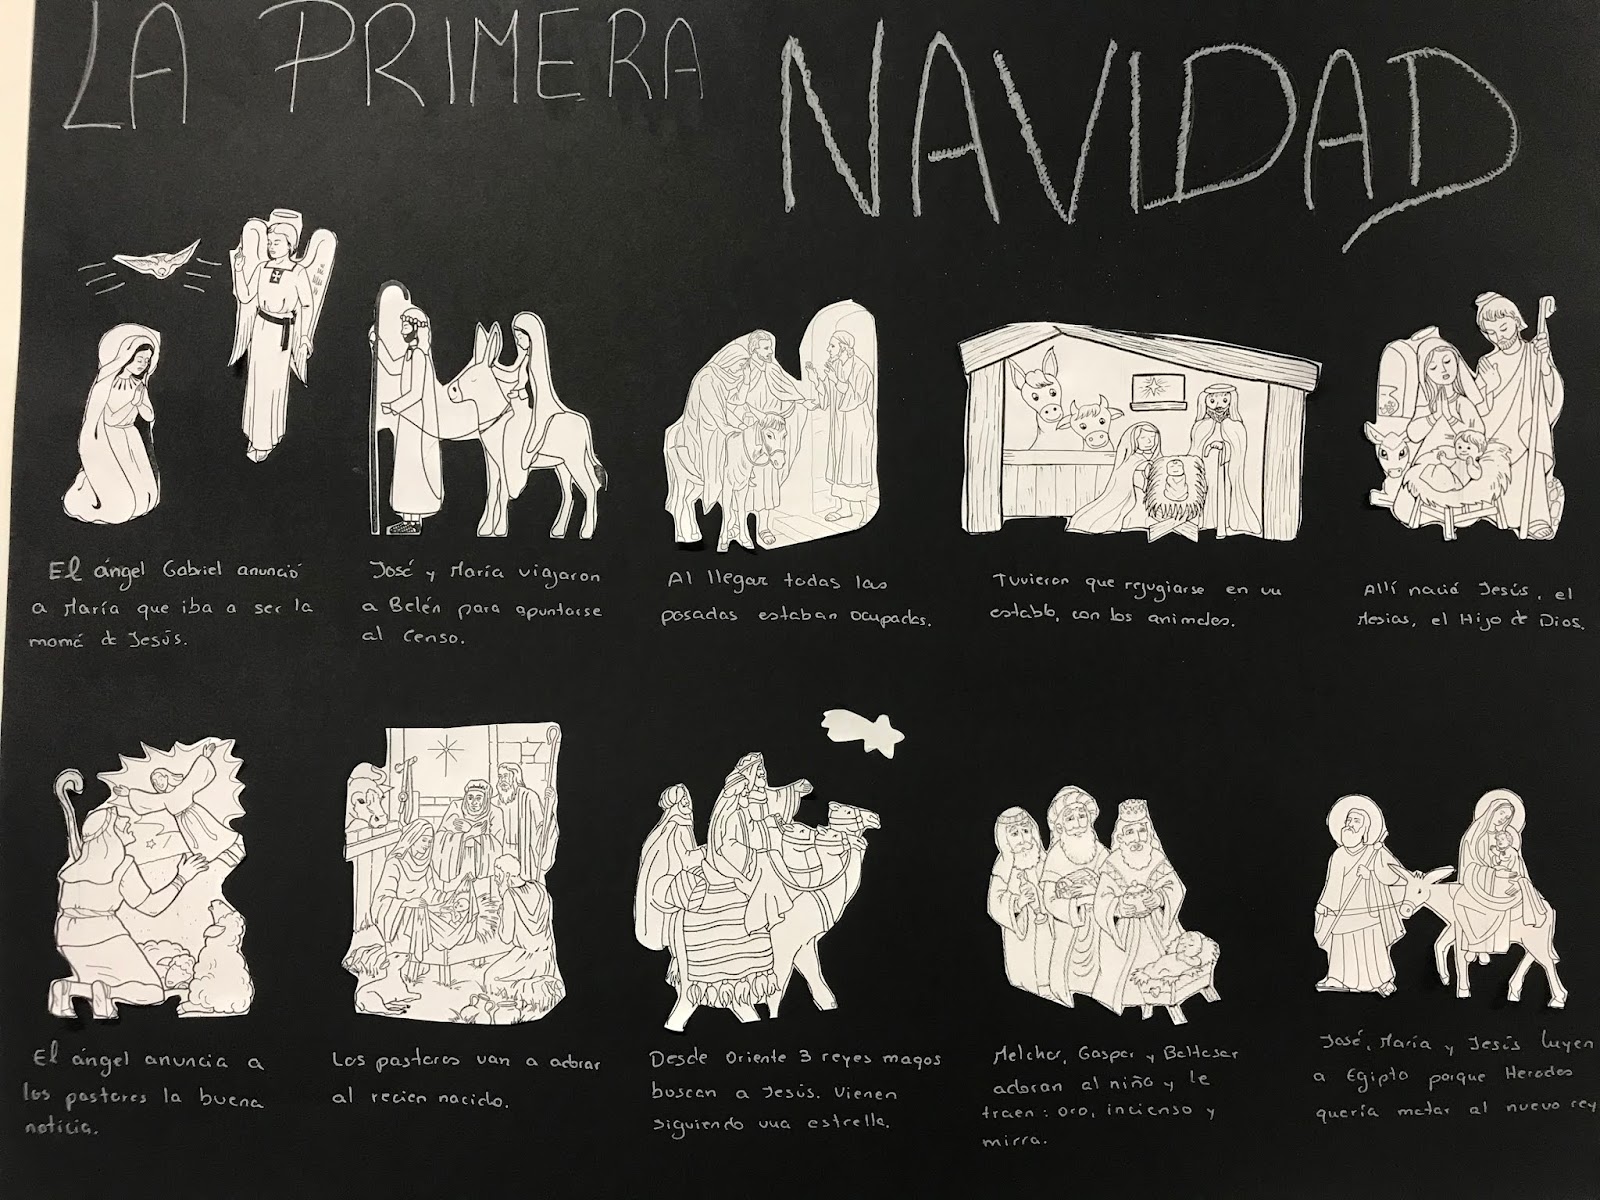 LA PRIMERA NAVIDAD
El ángel Gabriel anunció
a María que iba a ser la
mamá de Jesús.
José y María viajaron
a Belén para apuntarse
al Censo.
Al llegar todas las
posadas estaban ocupadas.
Tuvieron que refugiarse en un
establo, con los animales.
Allí nació Jesús, el
Mesias, el Hijo de Dios.
El ángel anuncia a
los pastores la buena
noticia.
Los pastores van a adorar
al recien nacido.
Desde Oriente 3 reyes magos
buscan a Jesús. Vienen
siguiendo una estrella.
Melchor, Gaspar y Baltasar
adoran al niño y le
traen: oro, incienso y
mirra.
José, María y Jesús huyen
a Egipto porque Herodes
quería matar al nuevo rey